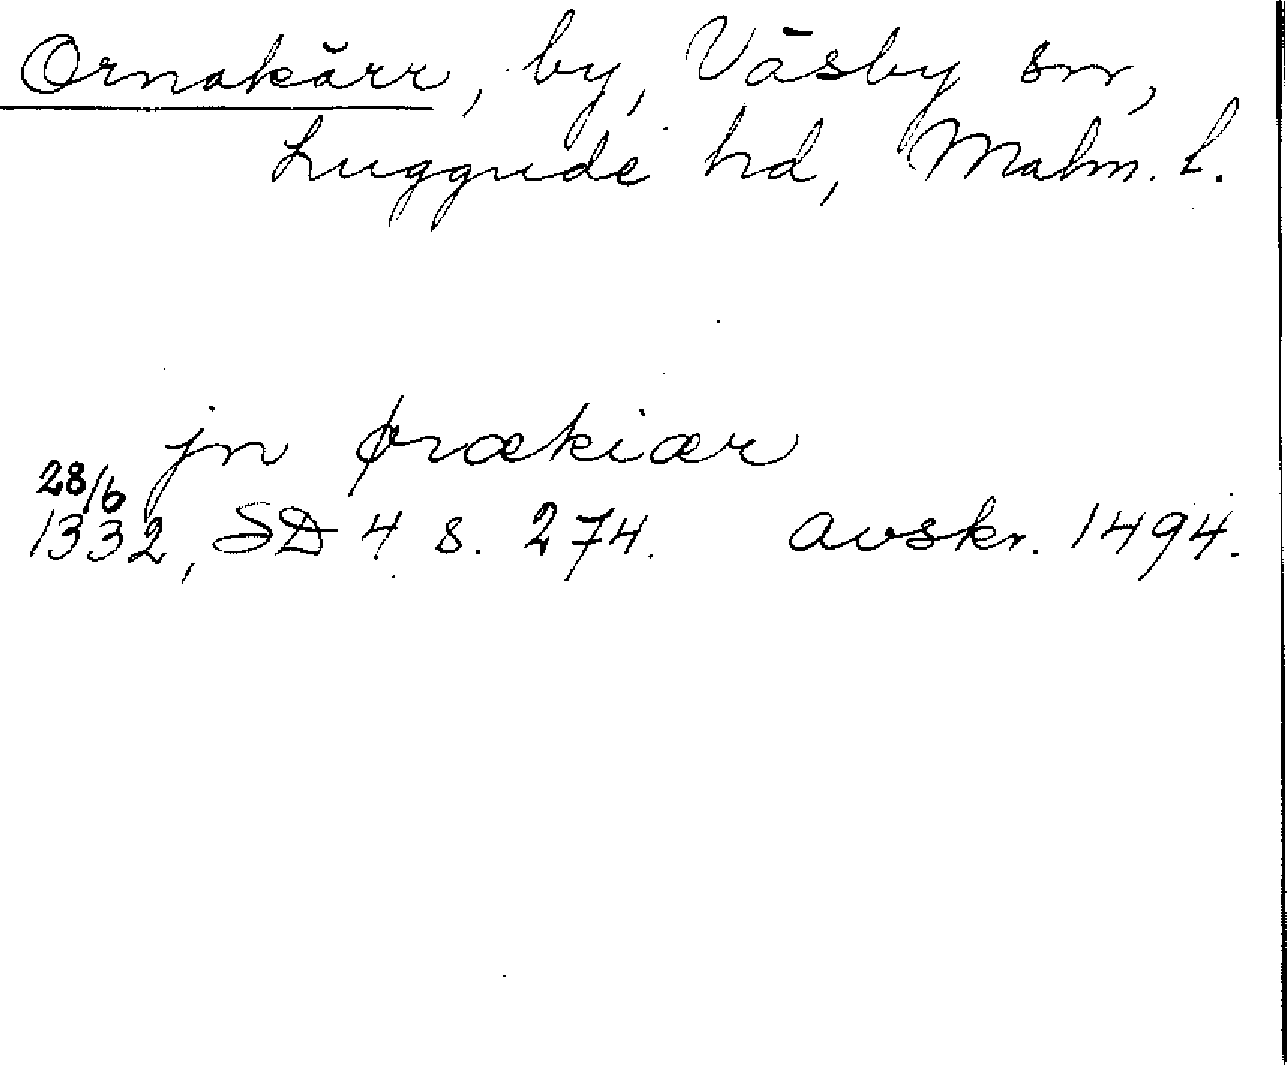 Ornakärr, by, Väsby sn,
Luggude hd, Malm. l.
jnørækiær
28/6
1332, SD 4 s. 274. avskr. 1494.